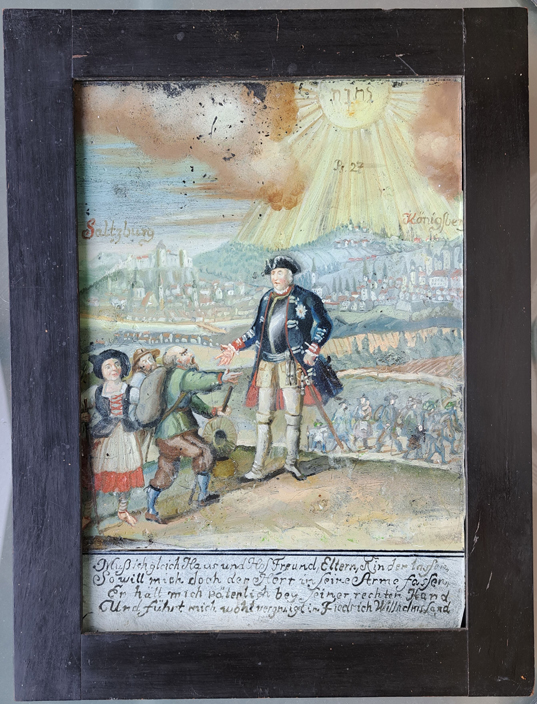 Ps 27
Saltzburg
Königsber
Muß ich gleich Haus und Hof Freund, Eltern, Kinder lassen,
So will mich doch der Herr in seine Arme fassen,
Er hält mich väterlich bey seiner rechten Hand
Und führt mich wohl vergnügt in Friedrich Wilhelms Land